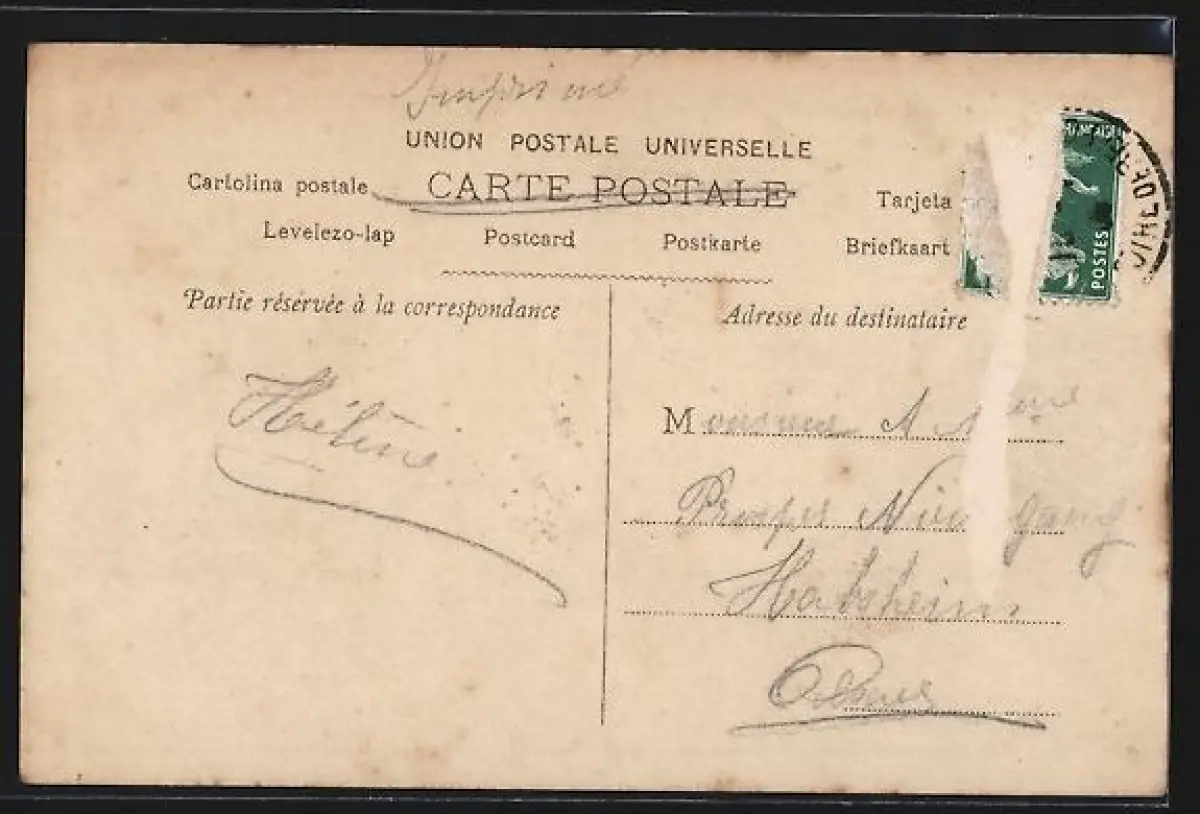 Imprimé
UNION POSTALE UNIVERSELLE
Cartolina postale CARTE POSTALE Tarjeta
Levelezo-lap Postcard Postkarte Briefkaart
Partie réservée à la correspondance
Adresse du destinataire
POSTES
Hélène
Monsieur A
Prosper
Habsheim